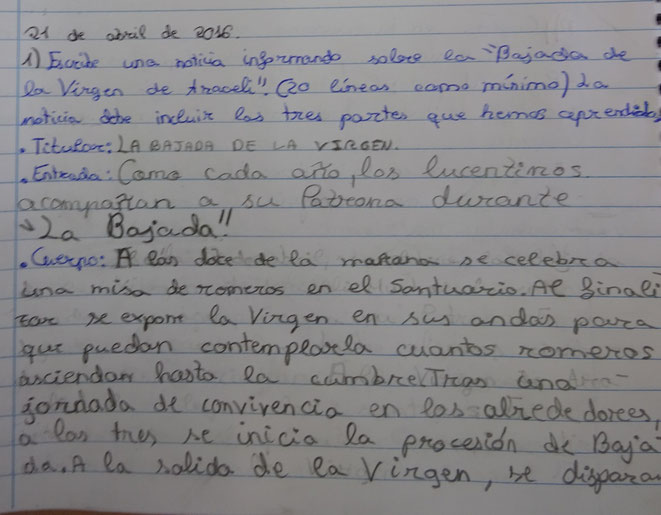 21 de abril de 2016.
1) Escribe una noticia informando sobre la "Bajada de
la Virgen de Araceli". (20 líneas como mínimo) La
noticia debe incluir las tres partes que hemos aprendido.
• Titular: LA BAJADA DE LA VIRGEN.
• Entrada: Como cada año, los lucentinos
acompañan a su Patrona durante
"La Bajada"
• Cuerpo: A las doce de la mañana se celebra
una misa de romeros en el Santuario. Al finali
zar se expone la Virgen en sus andas para
que puedan contemplarla cuantos romeros
asciendan hasta la cumbre. Tras una
jornada de convivencia en los alrededores,
a las tres se inicia la procesión de Baja
da. A la salida de la Virgen, se disparan